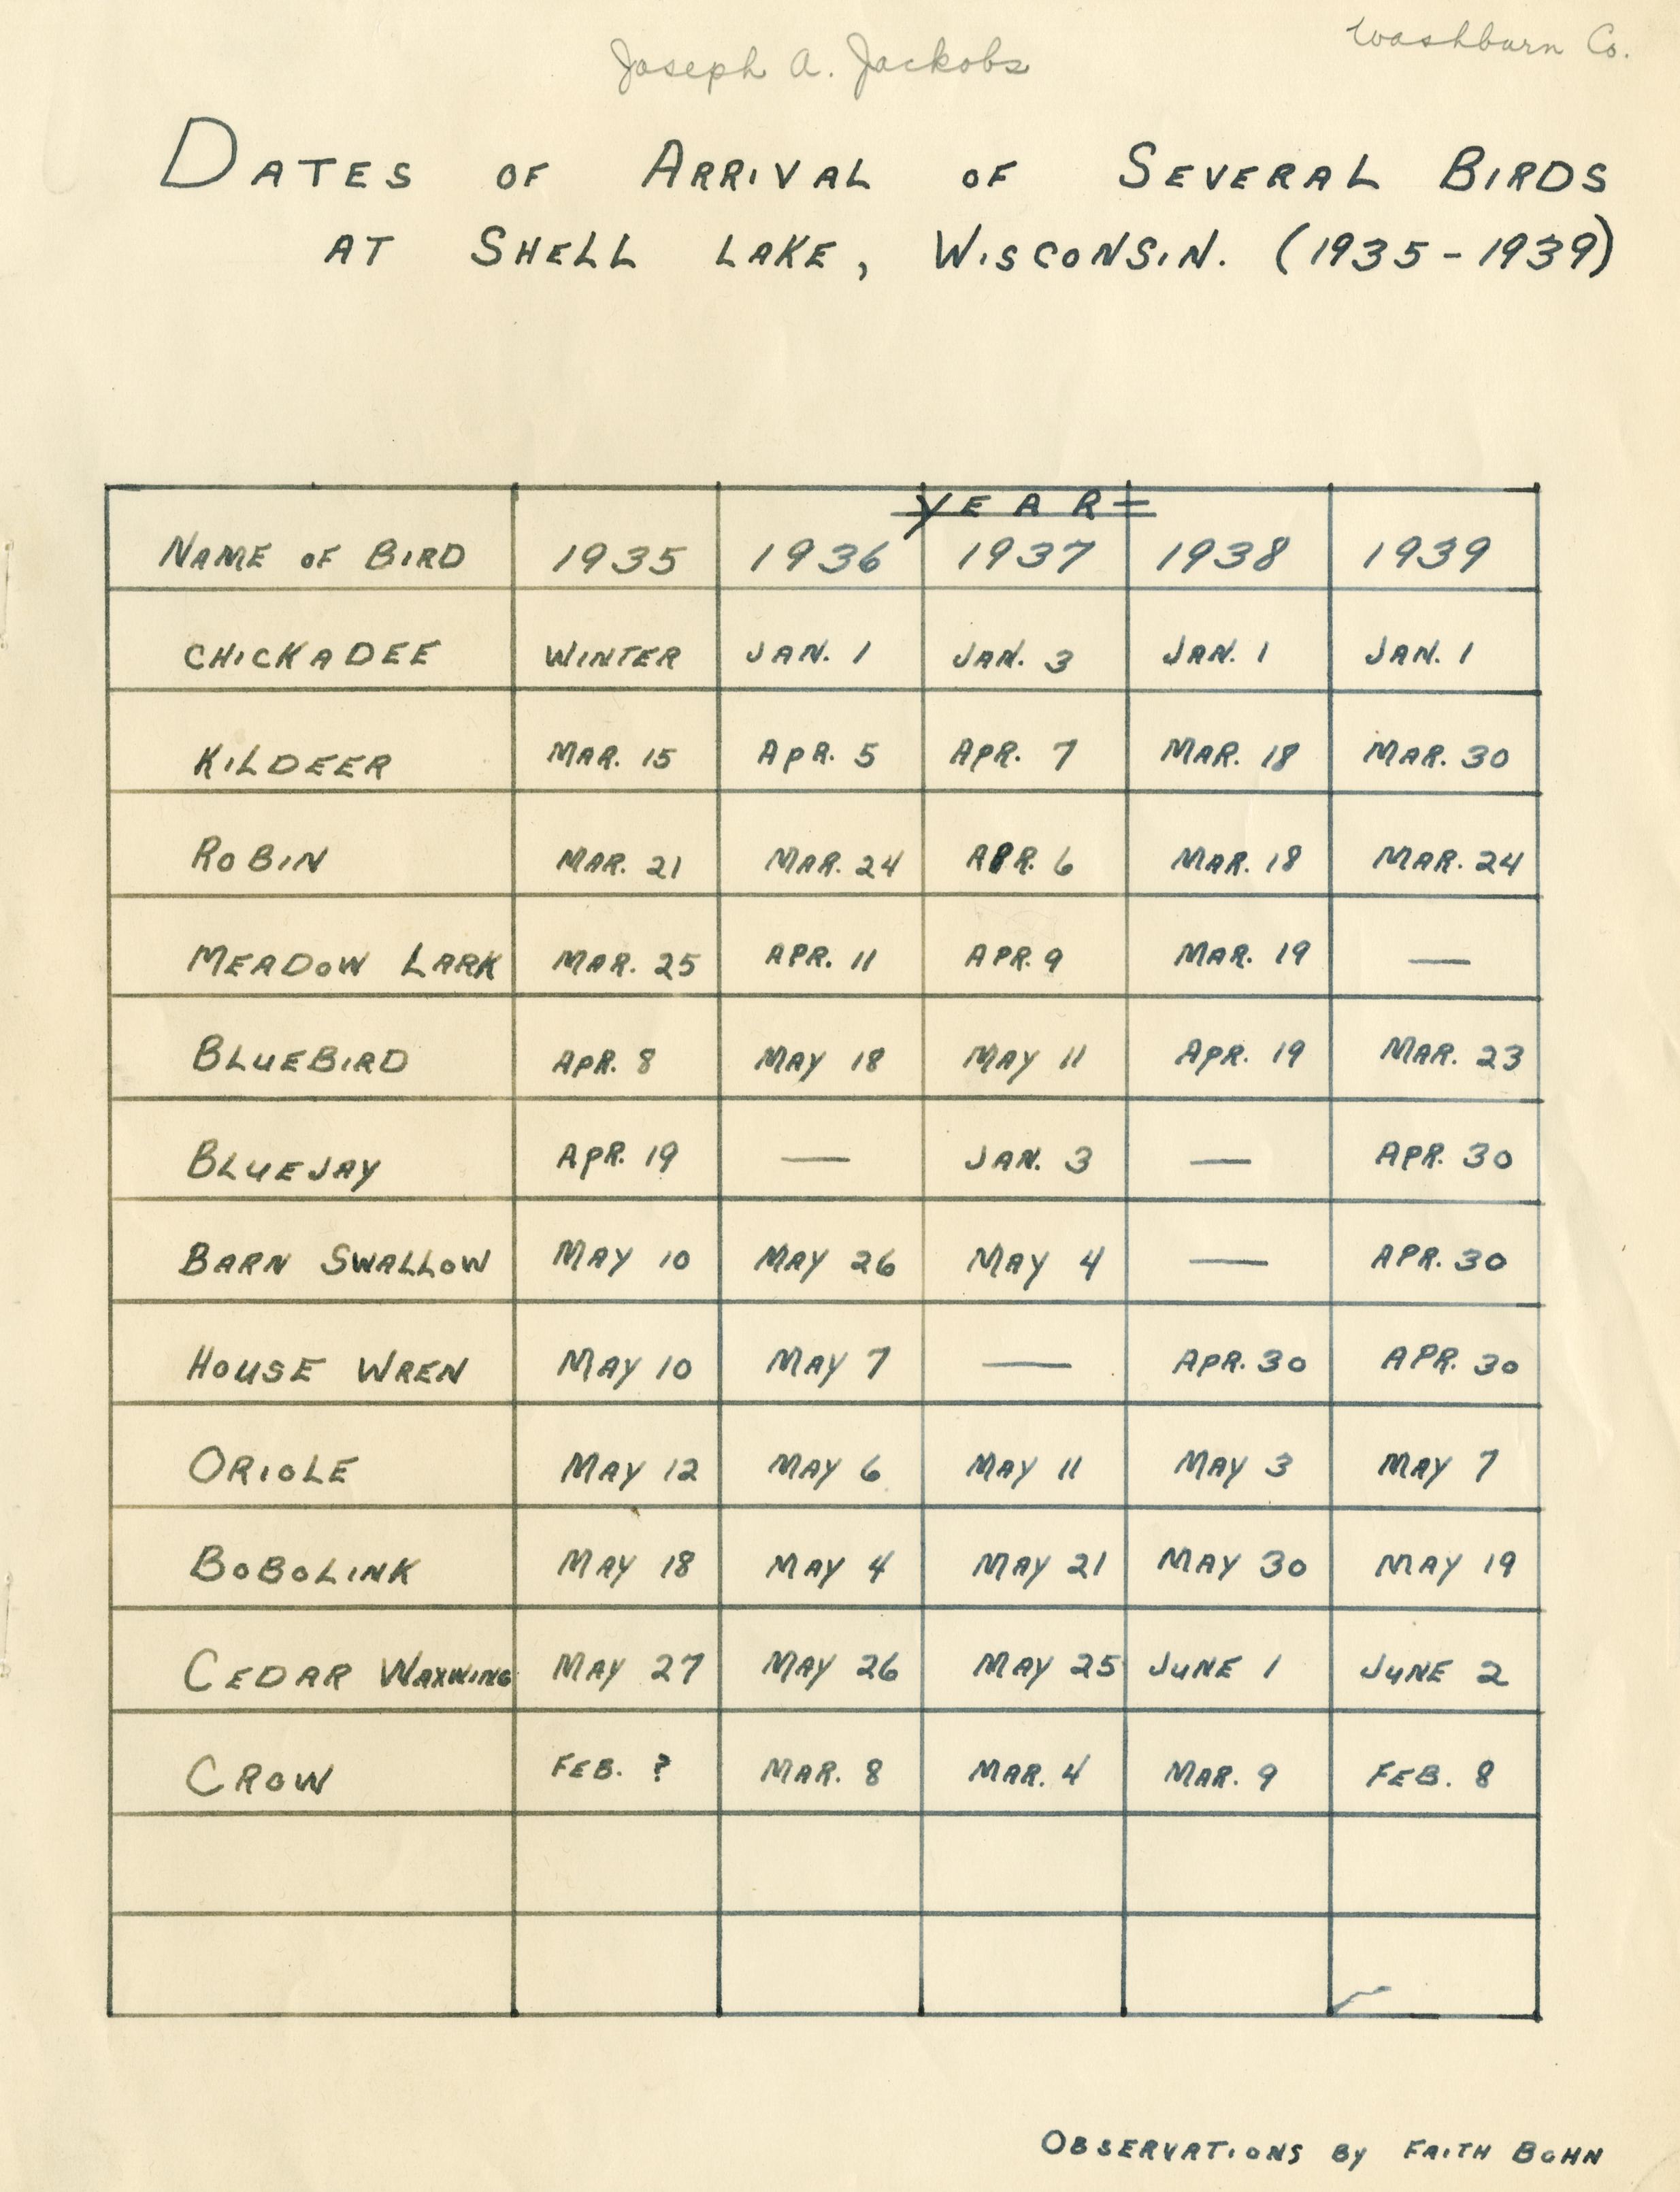 Joseph A. Jackobs
Washburn Co.
DATES OF ARRIVAL OF SEVERAL BIRDS
AT SHELL LAKE, WISCONSIN. (1935-1939)
YEAR
NAME OF BIRD 1935 1936 1937 1938 1939
CHICKADEE WINTER JAN. 1 JAN. 3 JAN. 1 JAN. 1
KILDEER MAR. 15 APR. 5 APR. 7 MAR. 18 MAR. 30
ROBIN MAR. 21 MAR. 24 APR. 6 MAR. 18 MAR. 24
MEADOW LARK MAR. 25 APR. 11 APR. 9 MAR. 19 —
BLUEBIRD APR. 8 MAY 18 MAY 11 APR. 19 MAR. 23
BLUEJAY APR. 19 — JAN. 3 — APR. 30
BARN SWALLOW MAY 10 MAY 26 MAY 4 — APR. 30
HOUSE WREN MAY 10 MAY 7 — APR. 30 APR. 30
ORIOLE MAY 12 MAY 6 MAY 11 MAY 3 MAY 7
BOBOLINK MAY 18 MAY 4 MAY 21 MAY 30 MAY 19
CEDAR WAXWING MAY 27 MAY 26 MAY 25 JUNE 1 JUNE 2
CROW FEB. ? MAR. 8 MAR. 4 MAR. 9 FEB. 8
OBSERVATIONS BY FAITH BOHN